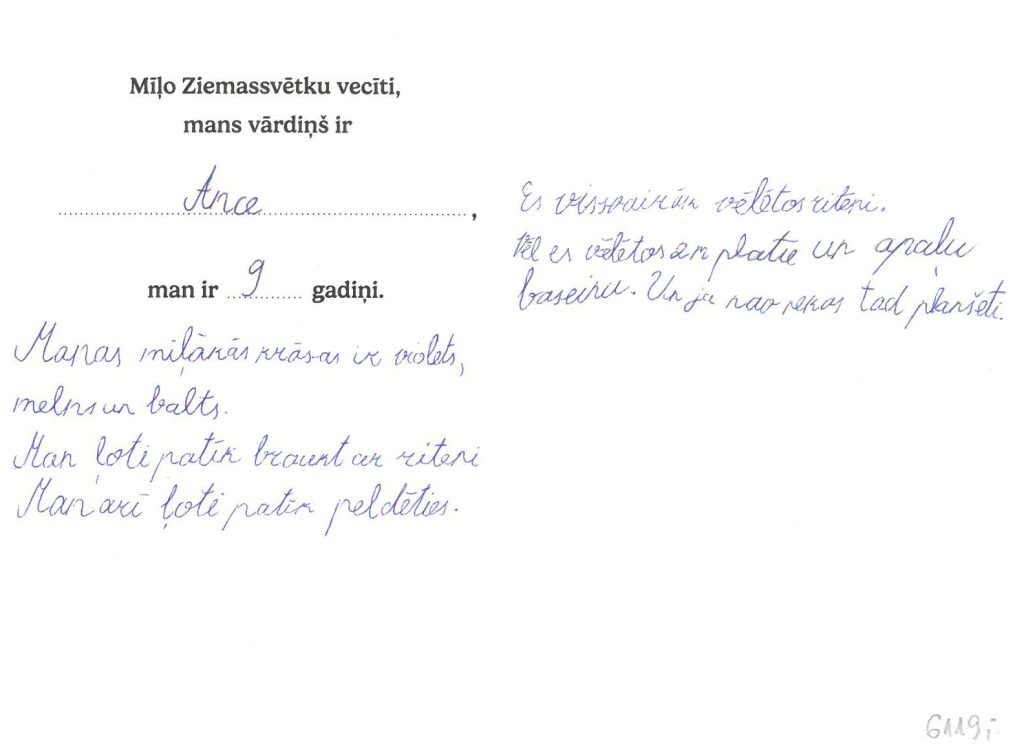 Mīļo Ziemassvētku vecīti,
mans vārdiņš ir
Ance,
man ir 9 gadiņi.
Manas mīļākās krāsas ir violets,
melns un balts.
Man ļoti patīk braukt ar riteni
Man arī ļoti patīk peldēties.
Es vissvairāk vēlētos riteni.
Vēl es vēlētos 2m platu un apaļu
baseinu. Un ja nav nekas tad planšeti.
6119